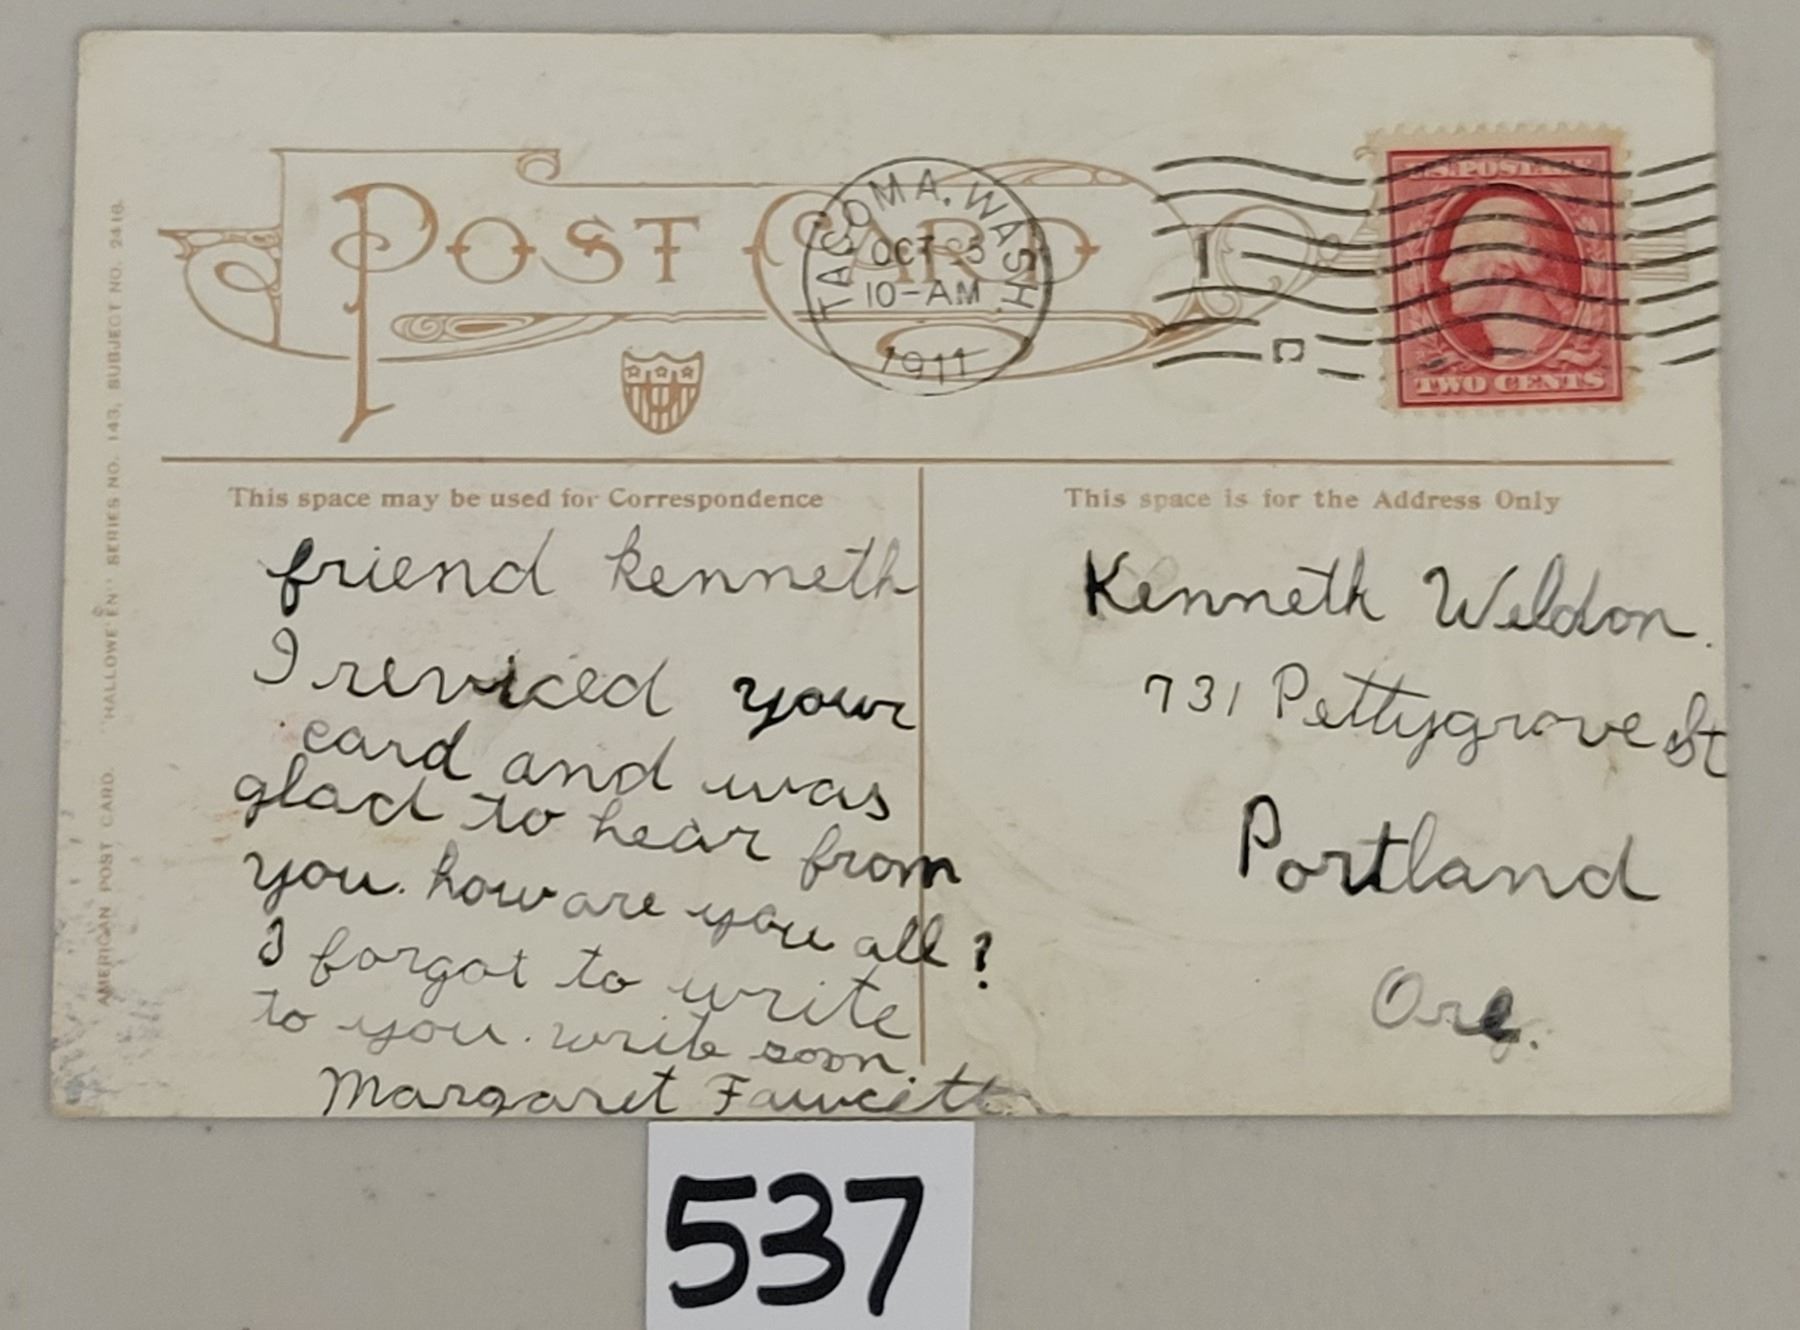 POST CARD
TACOMA, WASH.
OCT 5
10-AM
1911
U.S. POSTAGE
TWO CENTS
AMERICAN POST CARD. "HALLOWE'EN" SERIES NO. 143, SUBJECT NO. 2416.
This space may be used for Correspondence
friend kenneth
I reviced your
card and was
glad to hear from
you. how are you all?
I forgot to write
to you. write soon.
Margaret Fawcett
This space is for the Address Only
Kenneth Weldon.
731 Pettygrove St
Portland
Ore.
537